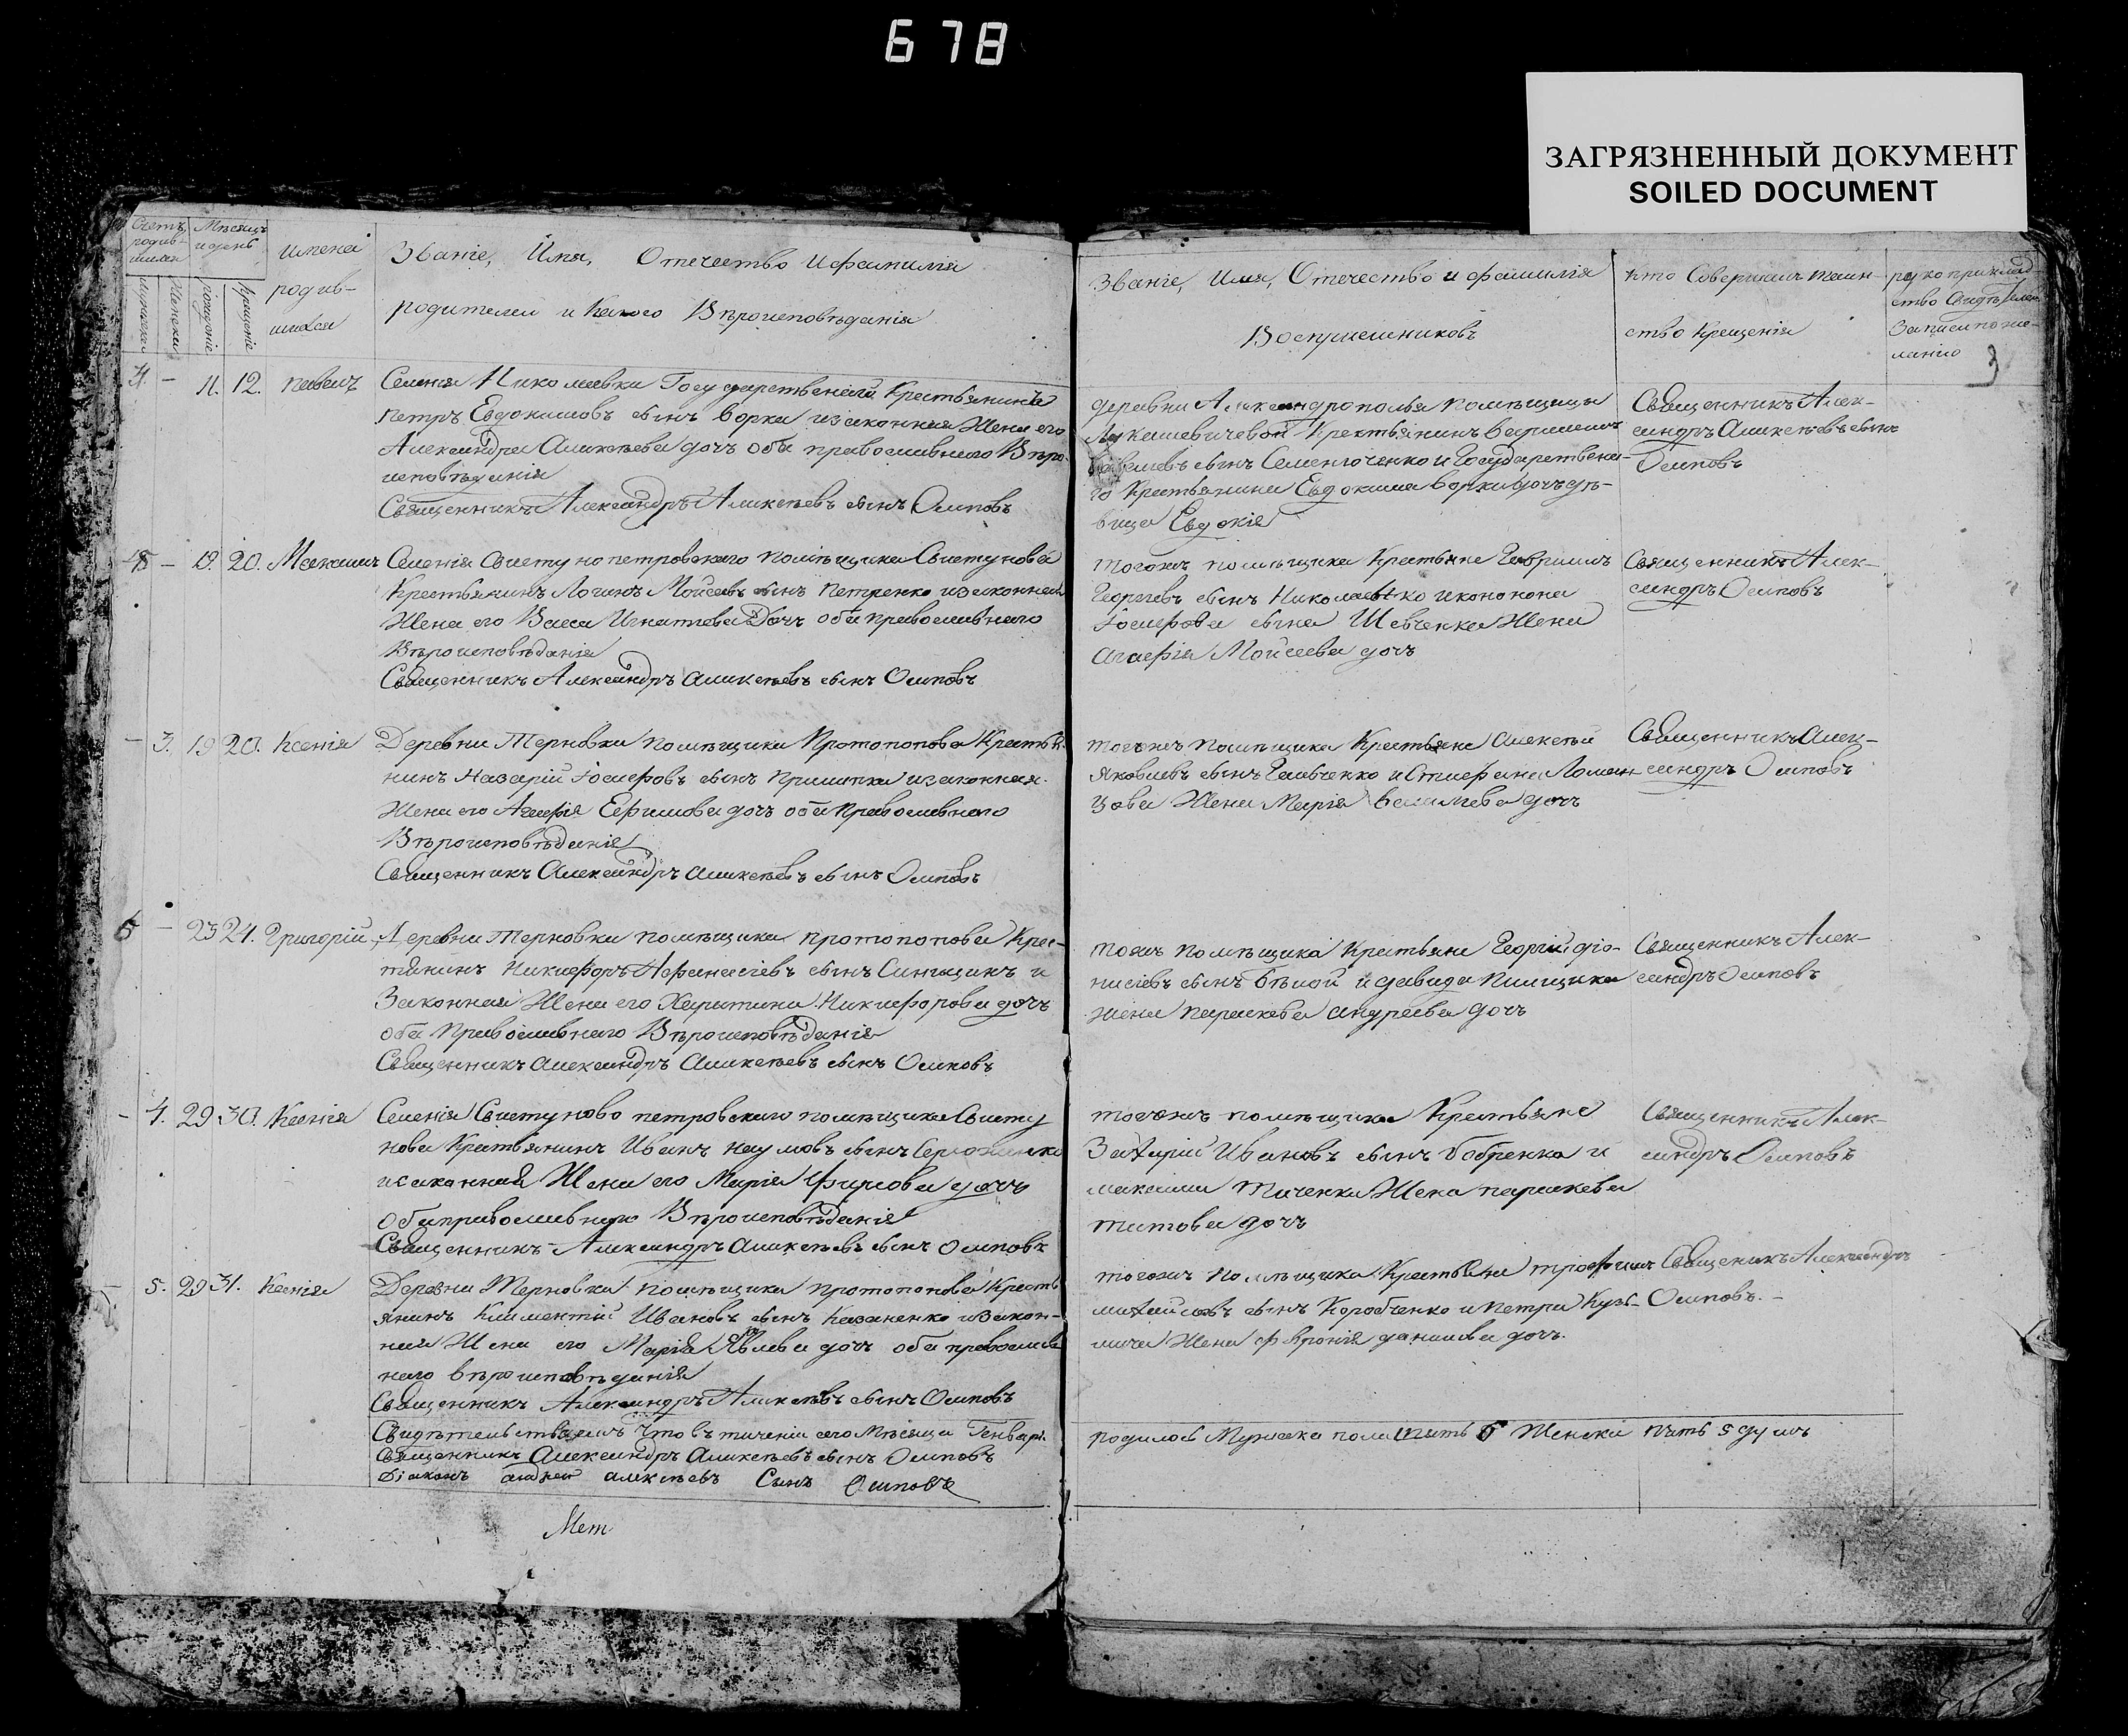 678
ЗАГРЯЗНЕННЫЙ ДОКУМЕНТ
SOILED DOCUMENT
Счетъ родив-шихся
Мѣсяцъ и день
имена родив-шихся
мужеска
Женска
рожденіе
крещеніе
Званіе, Имя, Отечество и фамилія
родителей и Какого Вѣроисповѣданія
Званіе, Имя, Отечество и фамилія
Воспріемниковъ
кто Совершалъ таин-
ство Крещенія
рукоприклад-
ство
записи по же-
ланію
3
4. - 11. 12. павелъ
Селенія Николаевки Государственный Крестьянинъ
Петръ Евдокимовъ сынъ Борка и законная Жена его
Александра Аликсѣева дочъ оба православнаго Вѣро-
исповѣданія
Священникъ Александръ Аликсѣевъ сынъ Осиповъ
деревни Александрополья помѣщицы
Лукашевичевой Крестьянинъ
сынъ Семенюченко и Государствена-
го Крестьянина Евдокима борки дочъ дѣ-
вица Евдокія
Священникъ Алек-
сандръ Аликсѣевъ сынъ
Осиповъ
5 - 19. 20. Максимъ
Селенія Свистунопетровскаго помѣщика Свистунова
Крестьянинъ Логинъ Мойсеевъ сынъ Петренко и законная
Жена его Васса Игнатіева Дочъ оба православнаго
Вѣроисповѣданія
Священникъ Александръ Аликсѣевъ сынъ Осиповъ
тогожъ помѣщика Крестьяне Гавріилъ
Георгіевъ сынъ Николаенко и конона
Іосифова сына Шевченка Жена
агафія Мойсеева дочъ
Священникъ Алек-
сандръ Осиповъ
- 3. 19 20. Ксенія
Деревни Терновки помѣщика Протопопова Крестья-
нинъ Назарій Іосифовъ сынъ и законная
Жена его Агафія Ефимова дочъ оба православнаго
Вѣроисповѣданія
Священникъ Александръ Аликсѣевъ сынъ Осиповъ
тогожъ помѣщика Крестьяне Алексѣй
Яковлевъ сынъ и Стефана
Жена Марія Василіева дочъ
Священникъ Алек-
сандръ Осиповъ
6 - 23 24. Григорій
Деревни Терновки помѣщика протопопова Крес-
тянинъ Никифоръ Афанасіевъ сынъ Синицинъ и
Законная Жена его Харитина Никифорова дочъ
оба Православнаго Вѣроисповѣданія
Священникъ Александръ Аликсѣевъ сынъ Осиповъ
тогожъ помѣщика Крестьяне Георгій діо-
нисіевъ сынъ Бѣлой и давида
жена параскева андреева дочъ
Священникъ Алек-
сандръ Осиповъ
- 4. 29 30. Ксенія
Селенія Свистуново петровскаго помѣщика Свисту
нова Крестьянинъ Иванъ наумовъ сынъ
и законная Жена его Марія Фирсова дочъ
Оба православнаго Вѣроисповѣданія
Священникъ Александръ Аликсѣевъ сынъ Осиповъ
тогожъ помѣщика Крестьяне
Захарій Ивановъ сынъ Бобренко и
максима Жена параскева
титова дочъ
Священникъ Алек-
сандръ Осиповъ
- 5. 29 31. Ксенія
Деревни Терновки помѣщика протопопова Кресть
янинъ Климентій Ивановъ сынъ Казаненко и закон-
ная Жена его Марія дочъ оба православ
наго вѣроисповѣданія
Священникъ Александръ Аликсѣевъ сынъ Осиповъ
тогожъ помѣщика Крестьяне трофимъ
михайловъ сынъ Коробченко и петра Кузь-
мича Жена февронія данилова дочъ.
Священикъ Александръ
Осиповъ. -
Свидѣтельствуемъ Что в теченіи сего Мѣсяца Генваря
родилось Мужеска пола пять 6 Женска пять 5 душъ
Священникъ Александръ Аликсѣевъ сынъ Осиповъ
Діаконъ андрей аликсѣевъ Сынъ Осиповъ
Мет